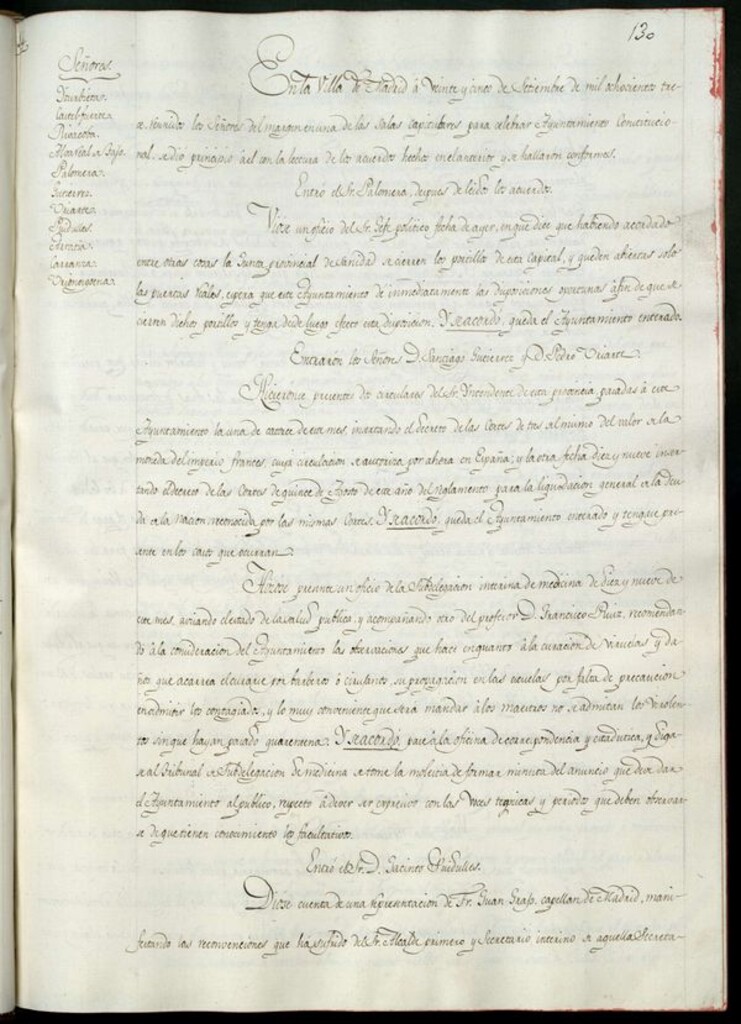 130
Señores.
Yturbieta.
Castelfuerte.
Monreal. de Bajo.
Palomera.
Gutierrez.
Uriarte.
Puidulles.
García.
Carranza.
Urionagoena.
En la Villa de Madrid á veinte y cinco de Setiembre de mil ochocientos tre-
ce, reunidos los Señores del margen en una de las Salas capitulares para celebrar Ayuntamiento Constitucio-
nal, se dio principio á él con la lectura de los acuerdos hechos en el anterior y se hallaron conformes.
Entró el Sr. Palomera, despues de leidos los acuerdos.
Viose un oficio del Sr. Gefe político fecha de ayer, en que dice que habiendo acordado
entre otras cosas la Junta provincial de Sanidad se cierren los portillos de esta Capital, y queden abiertas solo
las puertas Reales, espera que este Ayuntamiento dé inmediatamente las disposiciones oportunas á fin de que se
cierren dichos portillos y tenga desde luego efecto esta disposicion. Y se acordó, queda el Ayuntamiento enterado.
Entraron los Señores D. Santiago Gutierrez y D. Pedro Uriarte.
Hicieronse presentes dos circulares del Sr. Yntendente de esta provincia, pasadas á este
Ayuntamiento la una de catorce de este mes, insertando el Decreto de las Cortes de tres al mismo del valor de la
moneda del imperio frances, cuya circulacion se autoriza por ahora en España; y la otra fecha diez y nueve inser-
tando el decreto de las Cortes de quince de Agosto de este año del reglamento para la liquidacion general de la deu-
da de la Nacion reconocida por las mismas Cortes. Y se acordó, queda el Ayuntamiento enterado y tengase pre-
sente en los casos que ocurran.
Hizose presente un oficio de la Subdelegacion interina de medicina de diez y nueve de
este mes, avisando el estado de la salud publica, y acompañando otro del profesor D. Francisco Ruiz, recomendan-
do á la consideracion del Ayuntamiento las observaciones que hace en quanto á la curacion de Viruelas y da-
ños que acarrea el curarse por barberos ó cirujanos, su propagacion en las escuelas por falta de precaucion
en admitir los contagiados, y lo muy conveniente que será mandar á los maestros no se admitan los Virolen-
tos sin que hayan pasado quarentena. Y se acordó, pase á la oficina de correspondencia y estadistica, y diga-
se al tribunal de Subdelegacion de medicina se tome la molestia de formar minuta del anuncio que deve dar
el Ayuntamiento al publico, respecto á dever ser expresivo con las Voces tegnicas y periodos que deben observar-
se de que tienen conocimiento los facultativos.
Entró el Sr. D. Jacinto Puidulles.
Diose cuenta de una representacion de Fr. Juan Graso, capellan de Madrid, mani-
festando las reconvenciones que ha sufrido del Sr. Alcalde primero y Secretario interino de aquella Secreta-